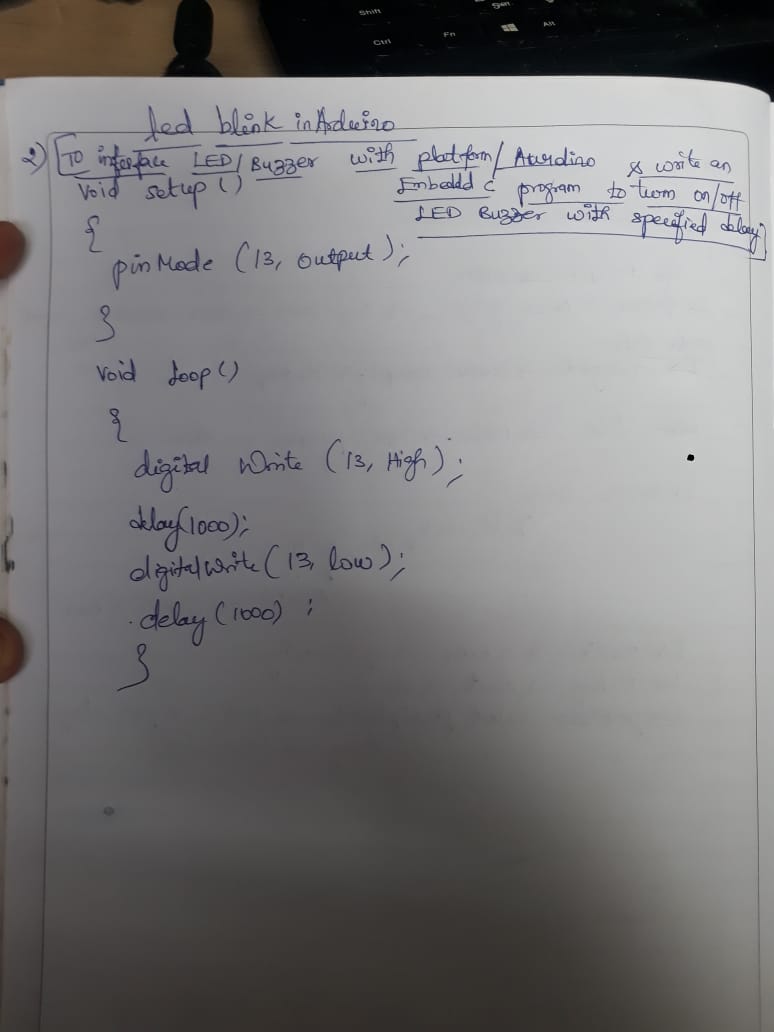 Shift
Ctrl
Fn
Alt
led blink in Arduino
2) To interface LED/Buzzer with platform/Aurdino & write an
Embedded C program to turn on/off
LED Buzzer with specified delay
void setup ()
{
pinMode (13, output);
}
void loop ()
{
digital Write (13, High);
delay(1000);
digitalwrite (13, low);
delay (1000) ;
}